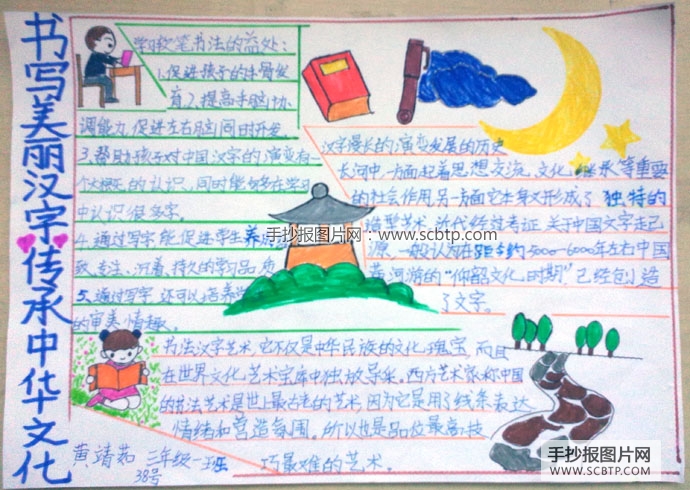 书写美丽汉字传承中华文化
学习软笔书法的益处：
1.促进孩子的手骨发
育2.提高手脑协
调能力,促进左右脑同时开发
3.帮助孩子对中国汉字的演变有
个大概的认识,同时能够在学习
中认识很多字。
4.通过写字能促进学生养
专注、沉着、持久的学习品
5.通过写字还可以培养学
的审美情趣。
汉字漫长的演变发展的历史
长河中,一方面起着思想交流、文化 承等重要
的社会作用,另一方面它本身又形成了独特的
造型艺术,近代经过考证,关于中国文字走己
源,一般认为在距今约5000-6000年左右中国
黄河游的“仰韶文化时期”已经创造
了文字。
手抄报图片网：www.scbtp.com
书法汉字艺术,它不仅是中华民族的文化瑰宝,而且
在世界文化艺术宝库中独放异采。西方艺术家称中国
的书法艺术是世上最古老的艺术,因为它是用了线条表达
情绪和营造氛围。所以也是品位最高技
巧最难的艺术。
黄靖茹 三年级一班
38号
手抄报图片网
WWW.SCBTP.COM